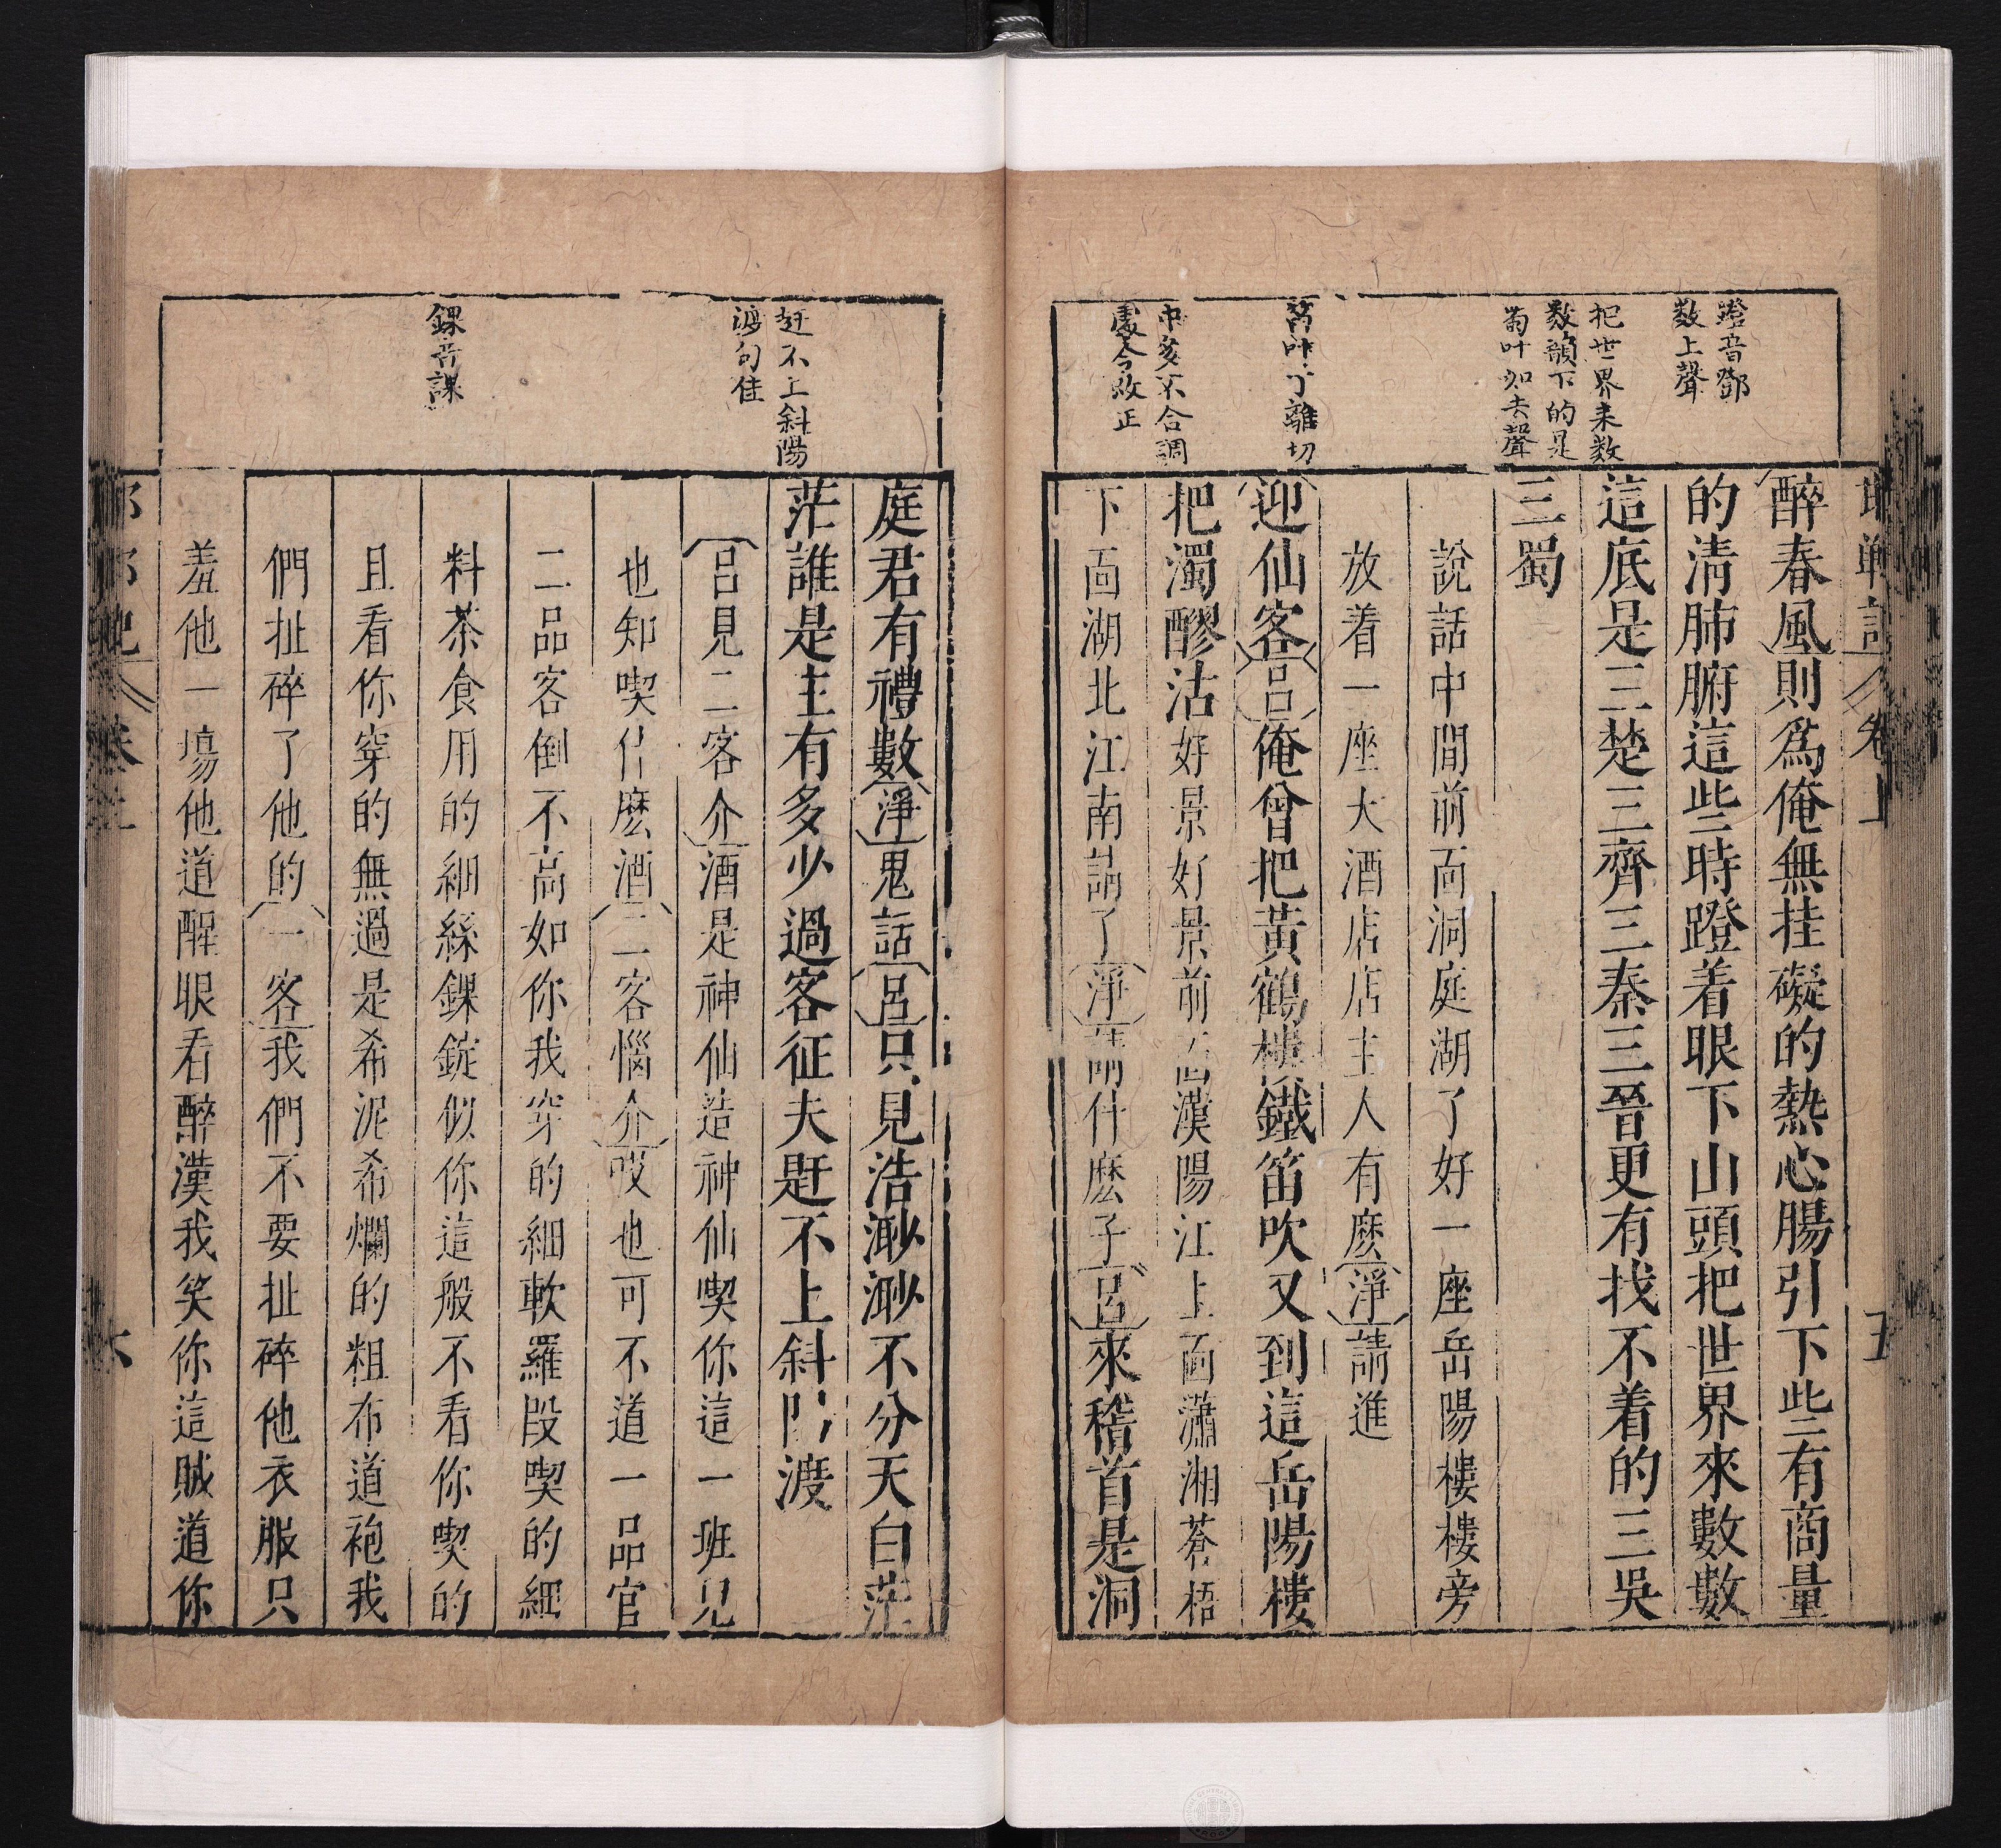 蹬音鄧
数上聲
把世界来数
数韻下的是
蜀叶如去聲
笛叶丁離切
中多不合調
處今改正
醉春風則爲俺無挂礙的熱心腸引下些有商量
的清肺腑這些時蹬着眼下山頭把世界來數數
這底是三楚三齊三秦三晉更有找不着的三吳
三蜀
說話中間前面洞庭湖了好一座岳陽樓樓旁
放着一座大酒店店主人有麽淨請進
迎仙客呂俺曾把黃鶴樓鐵笛吹又到這岳陽樓
把濁醪沽好景好景前面漢陽江上面瀟湘蒼梧
下面湖北江南請了淨請什麽子呂來稽首是洞
五
赶不上斜陽
渡句佳
錁音課
庭君有禮數淨鬼話呂只見浩渺渺不分天白茫
茫誰是主有多少過客征夫赶不上斜陽渡
呂見二客介酒是神仙造神仙喫你這一班兒
也知喫什麽酒二客惱介哎也可不道一品官
二品客倒不高如你我穿的細軟羅段喫的細
料茶食用的細絲錁錠似你這般不看你喫的
且看你穿的無過是希泥希爛的粗布道袍我
們扯碎了他的一客我們不要扯碎他衣服只
羞他一塲他道醒眼看醉漢我笑你這賊道你
邯鄲記 卷上
六